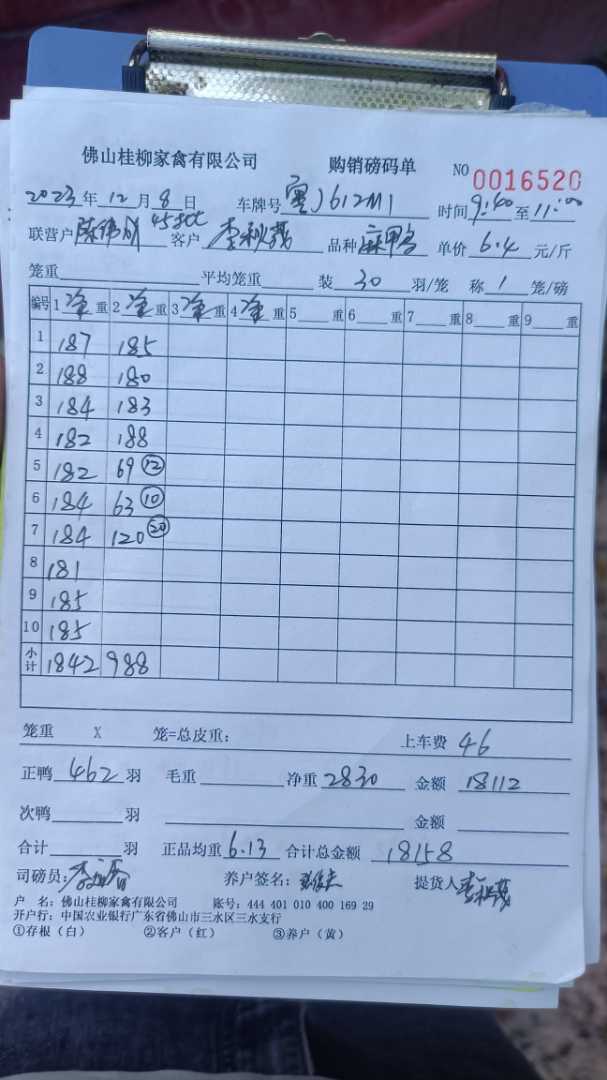 佛山桂柳家禽有限公司 购销磅码单 NO 0016520
2023年12月8日 车牌号 612M1 时间9:40至11:00
联营户 陈伟成 客户 李秋茂 品种 麻鸭 单价 6.4 元/斤
笼重 平均笼重 装 30 羽/笼 称 1 笼/磅
编号 1 净重 2 净重 3 净重 4 净重 5 重 6 重 7 重 8 重 9 重
1 187 185
2 188 180
3 184 183
4 182 188
5 182 69 ⑫
6 184 63 ⑩
7 184 120 ⑳
8 181
9 185
10 185
小计 1842 988
笼重 X 笼=总皮重： 上车费 46
正鸭 462 羽 毛重 净重 2830 金额 18112
次鸭 羽 金额
合计 羽 正品均重 6.13 合计总金额 18158
司磅员： 养户签名： 提货人 李秋茂
户 名：佛山桂柳家禽有限公司 账号：444 401 010 400 169 29
开户行：中国农业银行广东省佛山市三水区三水支行
①存根（白） ②客户（红） ③养户（黄）